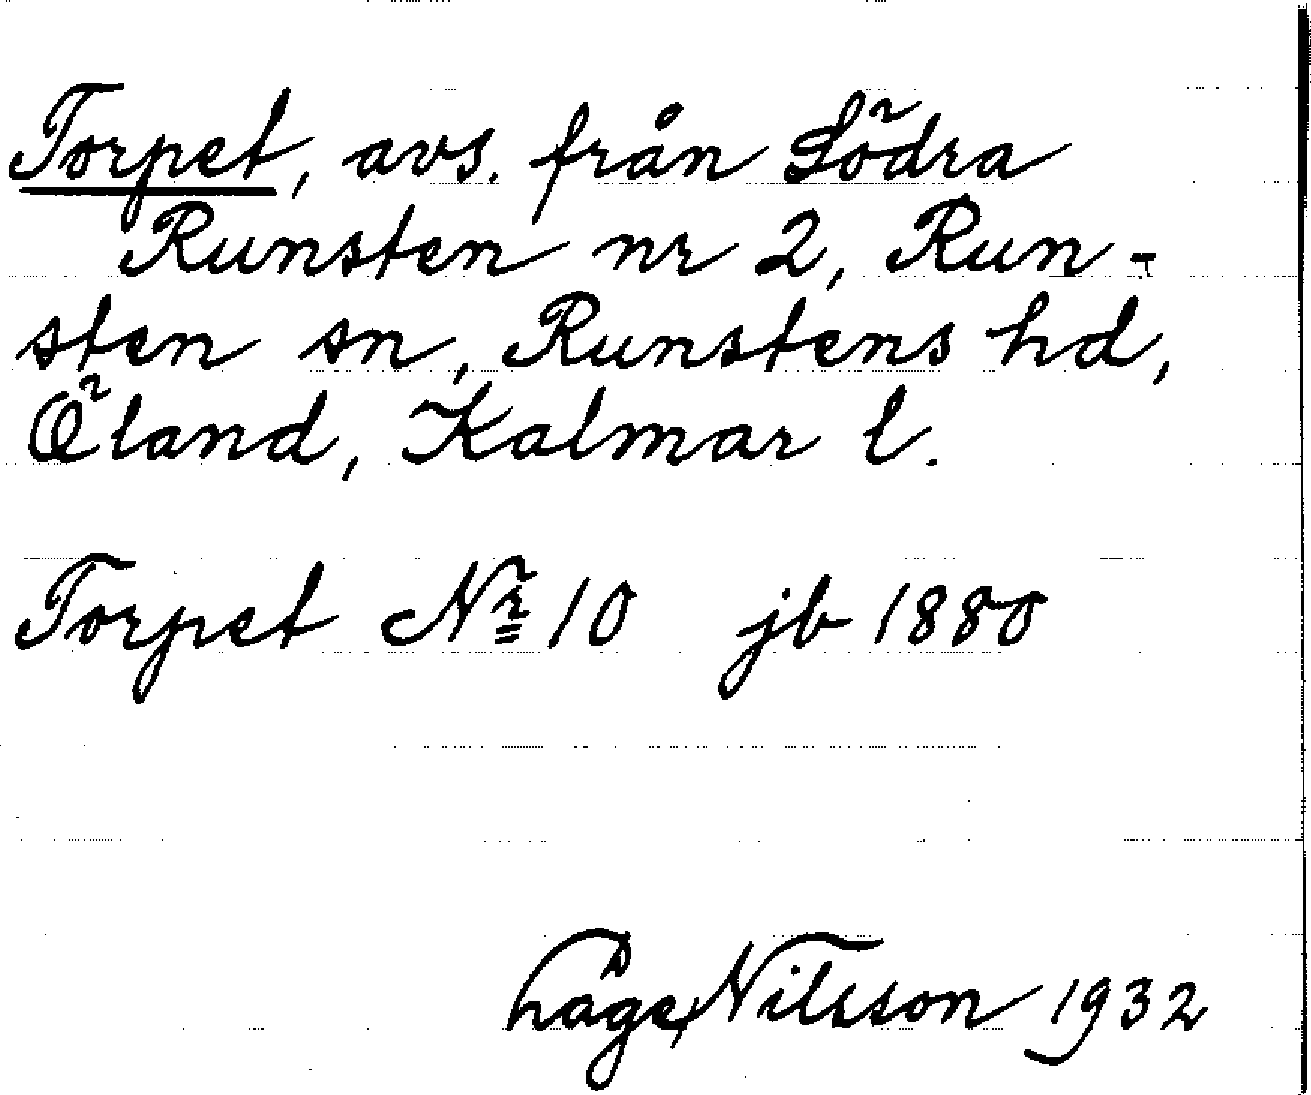 Torpet, avs. från Södra
Runsten nr 2, Run-
sten sn, Runstens hd,
Öland, Kalmar l.
Torpet No 10 jb 1880
Nilsson 1932